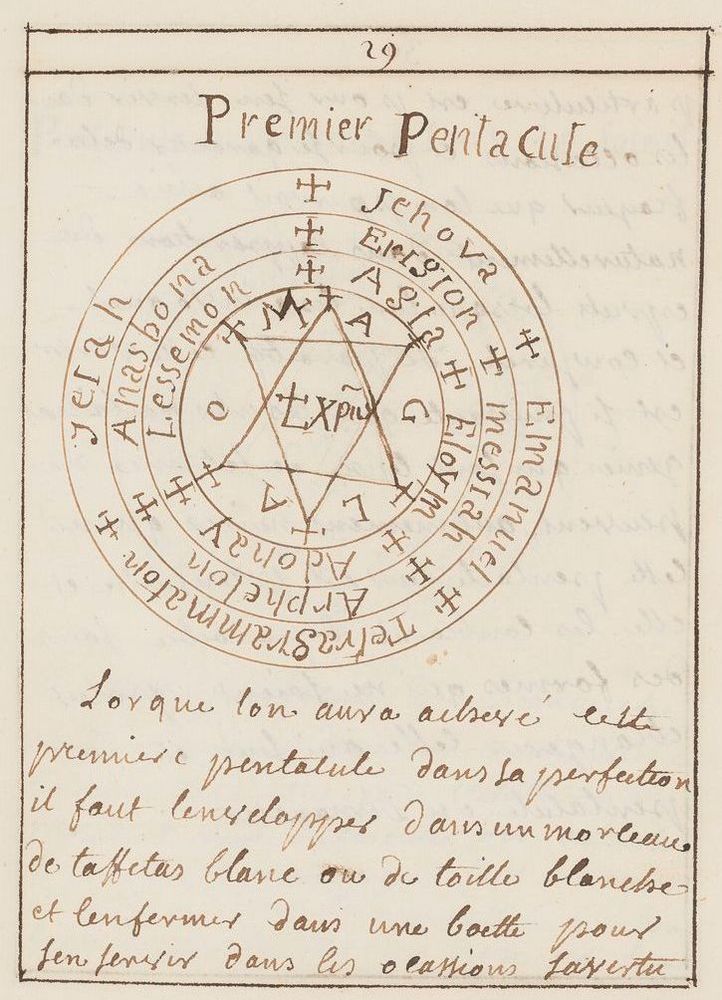 29
Premier Pentacule
+ Jehova + Emanuel + Tetragrammaton + Jesah
+ Erigion + Messiah + Arphelon + Anasbona
+ Agla + Eloym + Adonay + Lessemon
M A G L A O
+ Xpũs
Lorque lon aura acheve' cette
premiere pentacule dans sa perfection
il faut lenvelopper dans un morleau
de taffetas blanc ou de toille blanche
et lenfermer dans une boette pour
sen servir dans les ocassions savertu